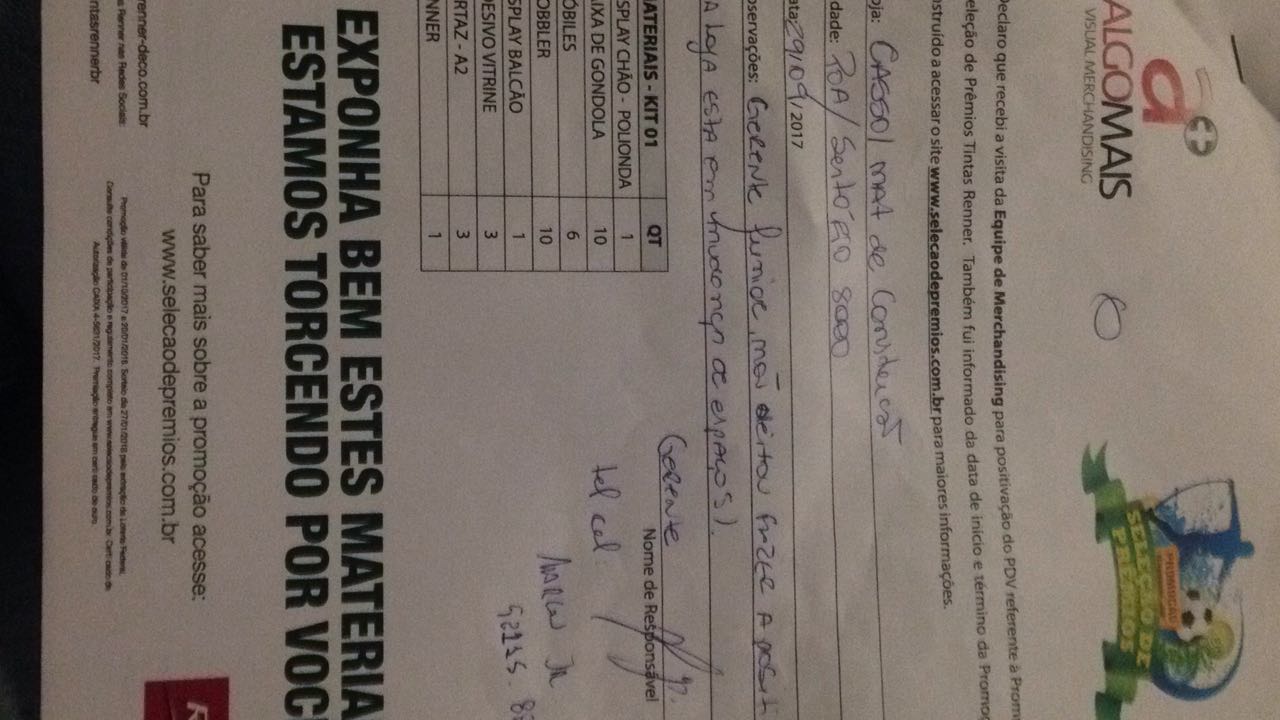 ALGOMAIS
VISUAL MERCHANDISING
PROMOÇÃO
SELEÇÃO DE
PRÊMIOS
Declaro que recebi a visita da Equipe de Merchandising para positivação do PDV referente à Prom
eleção de Prêmios Tintas Renner. Também fui informado da data de início e término da Promoç
nstruído a acessar o site www.selecaodepremios.com.br para maiores informações.
oja: CASSOL MAT de Construção
dade: POA/Sertório 8000
ata: 29/09/2017
bservações: Gerente Junior, não deixou fazer a positi
(A loja esta em mudança de espaços).
MATERIAIS - KIT 01 QT
SPLAY CHÃO - POLIONDA 1
IXA DE GONDOLA 10
ÓBILES 6
OBBLER 10
SPLAY BALCÃO 1
DESIVO VITRINE 3
RTAZ - A2 3
NNER 1
Gerente Jr.
Nome de Responsável
tel cel:
Marcos JR
EXPONHA BEM ESTES MATERIA
ESTAMOS TORCENDO POR VOC
Para saber mais sobre a promoção acesse:
www.selecaodepremios.com.br
renner-deco.com.br
s Renner nas Redes Sociais:
ntasrennerbr
Promoção válida de 01/10/2017 a 20/01/2018. Sorteio dia 27/01/2018 pela extração da Loteria Federal.
Consulte condições de participação e regulamento completo em www.selecaodepremios.com.br. Certificado de